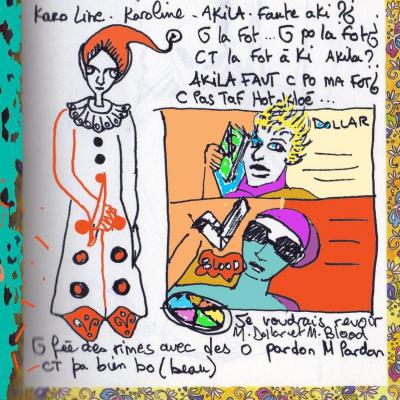 Karo Line. Karoline. AKiLA. Faute aki ?
G la Fot... G po la Fot
CT la Fot à Ki Akila?.
AKiLA FAUT C PO MA FOT
C Pas Taf Hot. Kloé...
DOLLAR
BLOOD
Je voudrais revoir
M. Dollar et M. Blood
G féé des rimes avec des O pardon M Pardon
CT pa bien bo (beau)